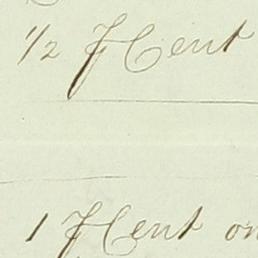 ½ ⅌ Cent
1 ⅌ Cent on